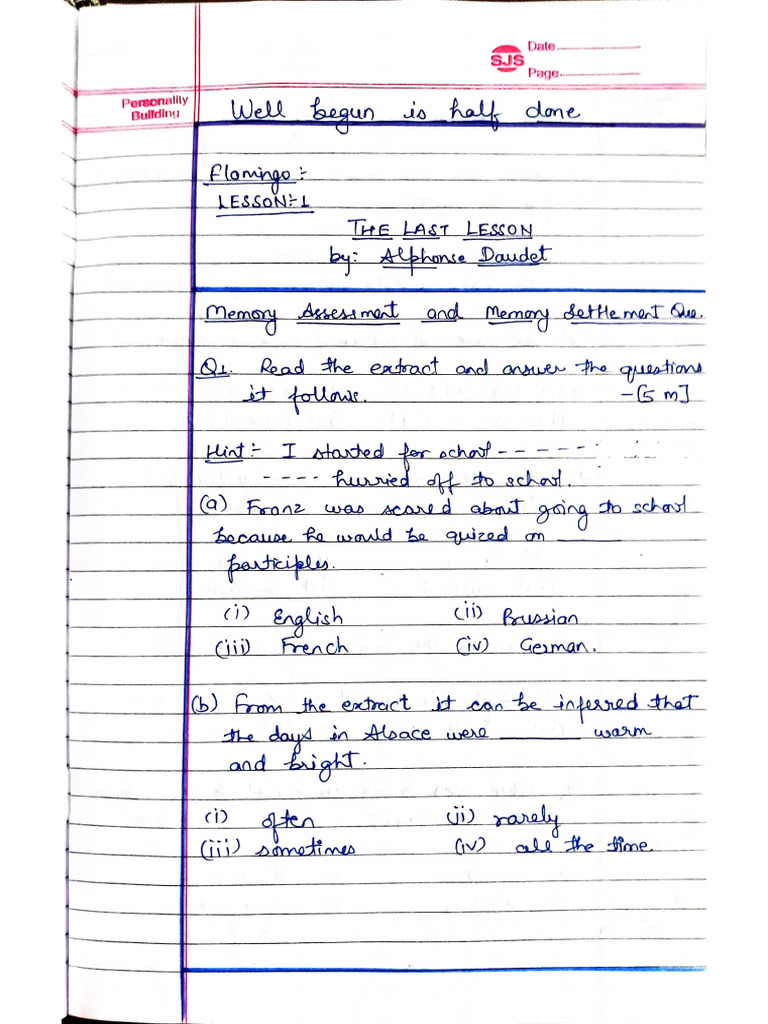 SJS
Date
Page
Personality
Building
Well begun is half done
Flamingo :-
LESSON:-1
THE LAST LESSON
by: Alphonse Daudet
Memory Assessment and Memory Settlement Que.
Q1. Read the extract and answer the questions
it follows. -[5 m]
Hint :- I started for school - - - - - -
- - - - hurried off to school.
(a) Franz was scared about going to school
because he would be quized on ______
participles.
(i) English (ii) Prussian
(iii) French (iv) German.
(b) From the extract it can be inferred that
the days in Alsace were ______ warm
and bright.
(i) often (ii) rarely
(iii) sometimes (iv) all the time.